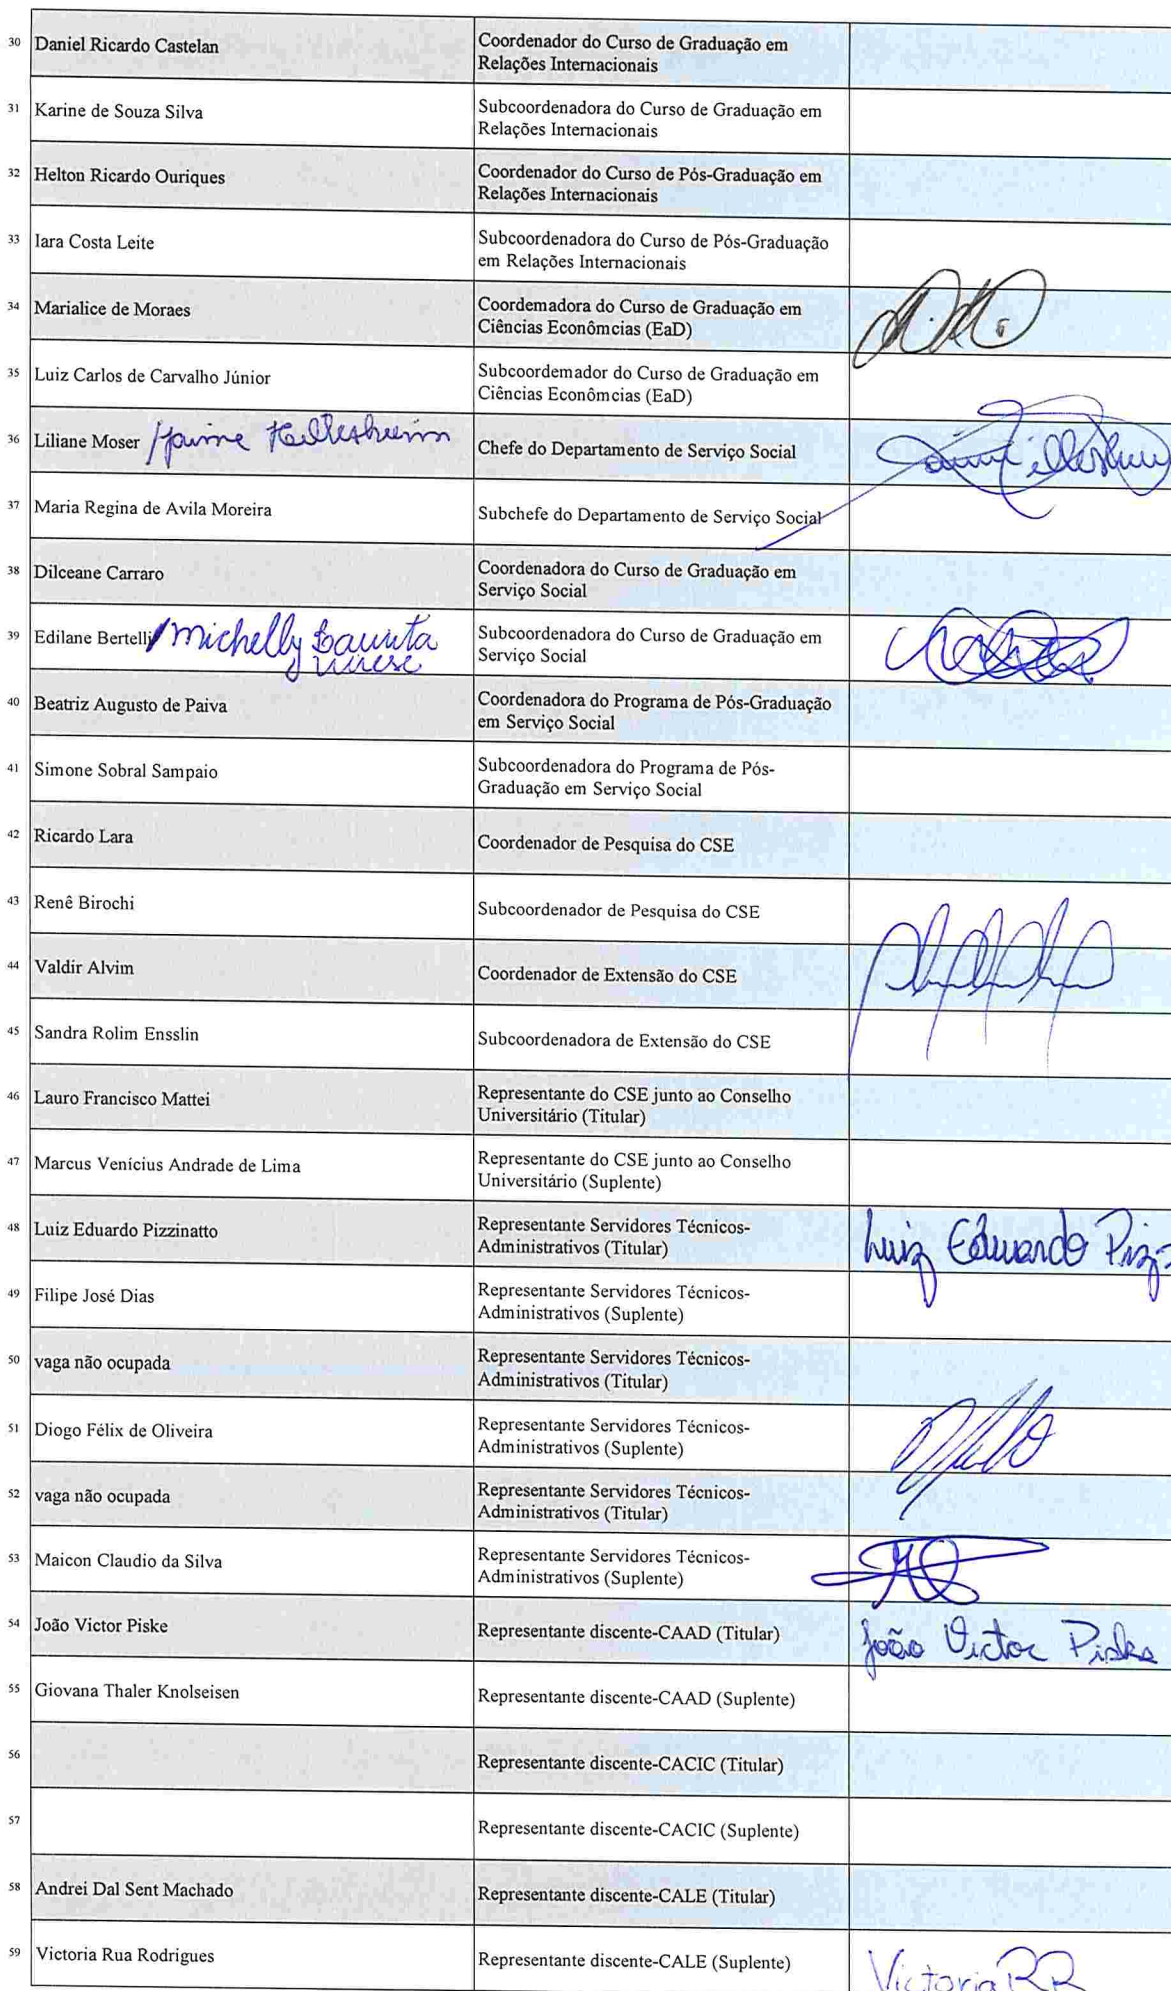 30 Daniel Ricardo Castelan Coordenador do Curso de Graduação em
Relações Internacionais
31 Karine de Souza Silva Subcoordenadora do Curso de Graduação em
Relações Internacionais
32 Helton Ricardo Ouriques Coordenador do Curso de Pós-Graduação em
Relações Internacionais
33 Iara Costa Leite Subcoordenadora do Curso de Pós-Graduação
em Relações Internacionais
34 Marialice de Moraes Coordemadora do Curso de Graduação em
Ciências Econômcias (EaD)
35 Luiz Carlos de Carvalho Júnior Subcoordemador do Curso de Graduação em
Ciências Econômcias (EaD)
36 Liliane Moser / Jaime Hillesheim Chefe do Departamento de Serviço Social
37 Maria Regina de Avila Moreira Subchefe do Departamento de Serviço Social
38 Dilceane Carraro Coordenadora do Curso de Graduação em
Serviço Social
39 Edilane Bertelli / Michelly Laurita Subcoordenadora do Curso de Graduação em
Wiese Serviço Social
40 Beatriz Augusto de Paiva Coordenadora do Programa de Pós-Graduação
em Serviço Social
41 Simone Sobral Sampaio Subcoordenadora do Programa de Pós-
Graduação em Serviço Social
42 Ricardo Lara Coordenador de Pesquisa do CSE
43 Renê Birochi Subcoordenador de Pesquisa do CSE
44 Valdir Alvim Coordenador de Extensão do CSE
45 Sandra Rolim Ensslin Subcoordenadora de Extensão do CSE
46 Lauro Francisco Mattei Representante do CSE junto ao Conselho
Universitário (Titular)
47 Marcus Venícius Andrade de Lima Representante do CSE junto ao Conselho
Universitário (Suplente)
48 Luiz Eduardo Pizzinatto Representante Servidores Técnicos- Luiz Eduardo Piz
Administrativos (Titular)
49 Filipe José Dias Representante Servidores Técnicos-
Administrativos (Suplente)
50 vaga não ocupada Representante Servidores Técnicos-
Administrativos (Titular)
51 Diogo Félix de Oliveira Representante Servidores Técnicos-
Administrativos (Suplente)
52 vaga não ocupada Representante Servidores Técnicos-
Administrativos (Titular)
53 Maicon Claudio da Silva Representante Servidores Técnicos-
Administrativos (Suplente)
54 João Victor Piske Representante discente-CAAD (Titular) João Victor Piske
55 Giovana Thaler Knolseisen Representante discente-CAAD (Suplente)
56 Representante discente-CACIC (Titular)
57 Representante discente-CACIC (Suplente)
58 Andrei Dal Sent Machado Representante discente-CALE (Titular)
59 Victoria Rua Rodrigues Representante discente-CALE (Suplente) Victoria RR